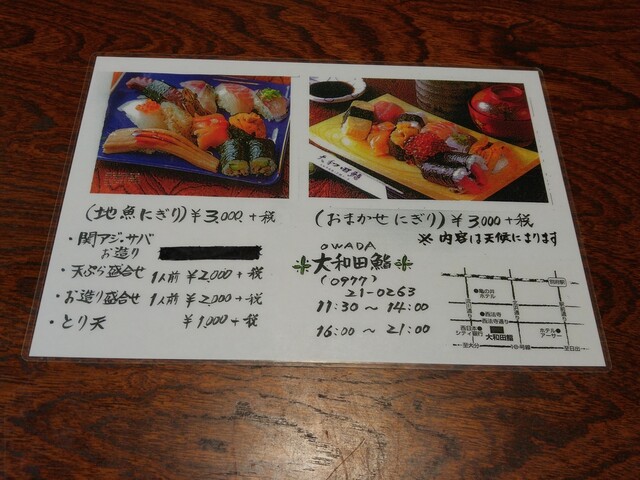 大和田鮨
(地魚にぎり) ¥3,000, +税
(おまかせにぎり) ¥3000 +税
※ 内容は天候によります
・関アジ・サバ
お造り
・天ぷら盛合せ 1人前 ¥2,000 +税
・お造り盛合せ 1人前 ¥2,000 +税
・とり天 ¥1,000 +税
OWADA
大和田鮨
(0977)
21-0263
11:30 ~ 14:00
16:00 ~ 21:00
別府駅
亀の井
ホテル
西法寺
西法寺通り
西日本
シティ銀行
大和田鮨
ホテル
アーサー
至大分
10号線
至日出